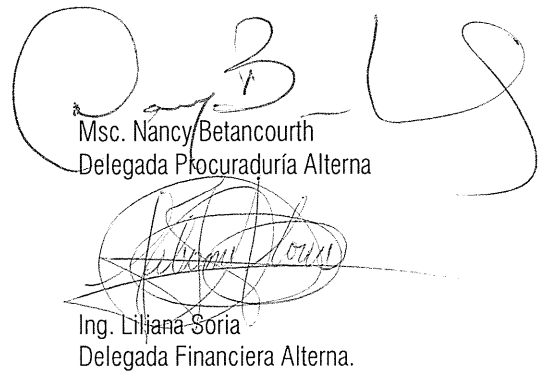 Msc. Nancy Betancourth
Delegada Procuraduría Alterna
Liliana Soria
Ing. Liliana Soria
Delegada Financiera Alterna.